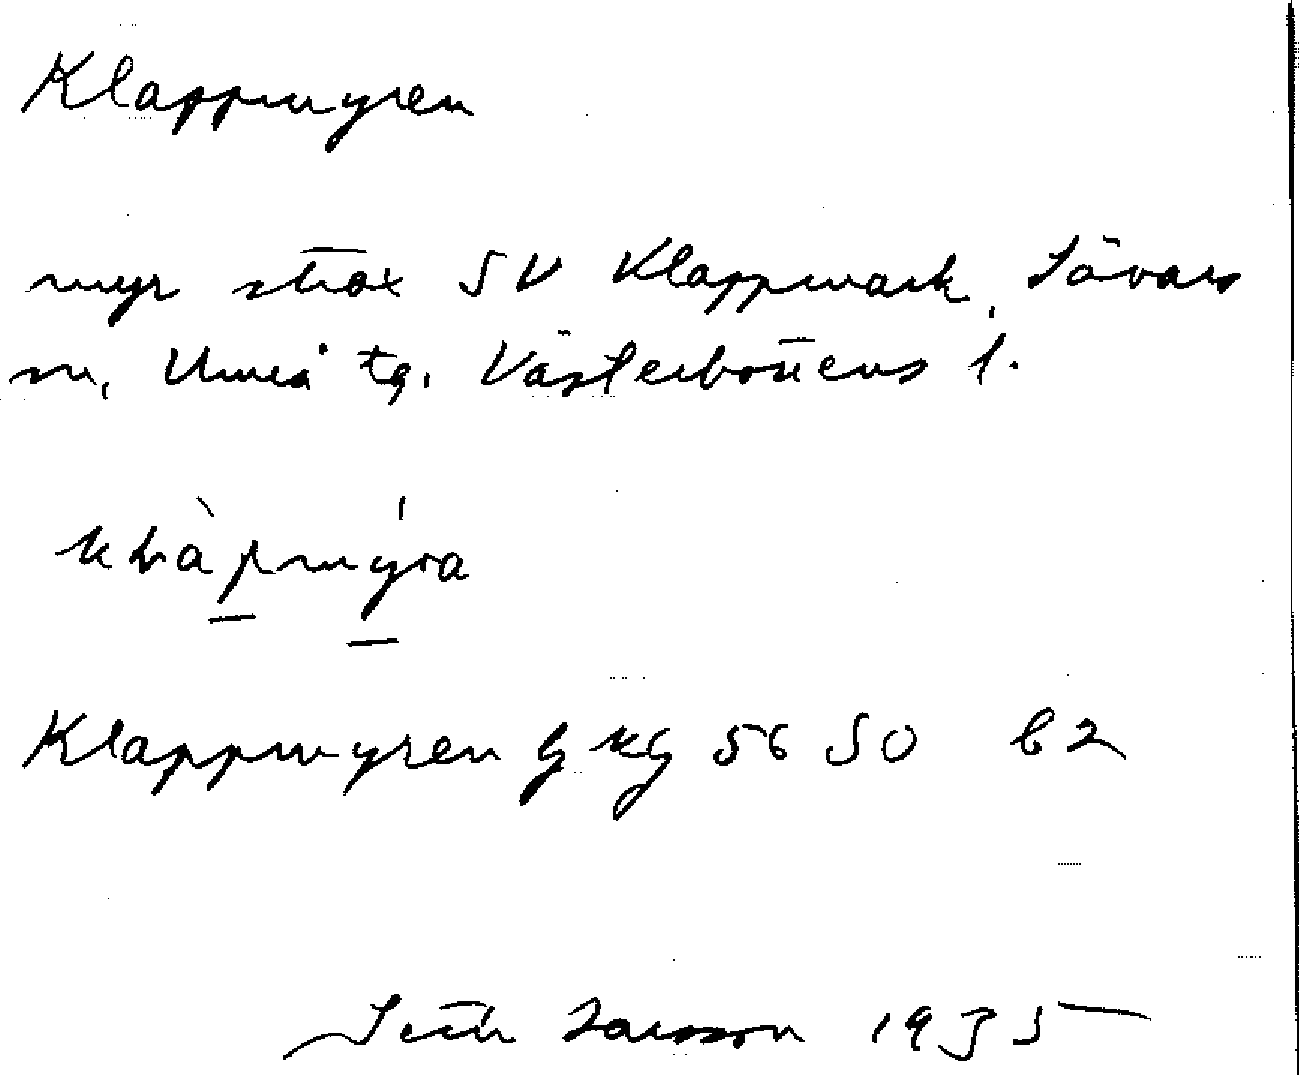 Klappmyren
myr strax SV Klappmark, Sävars
sn, Umeå tg. Västerbottens l.
Klappmyren g kg 56 50 b2
Larsson 1935